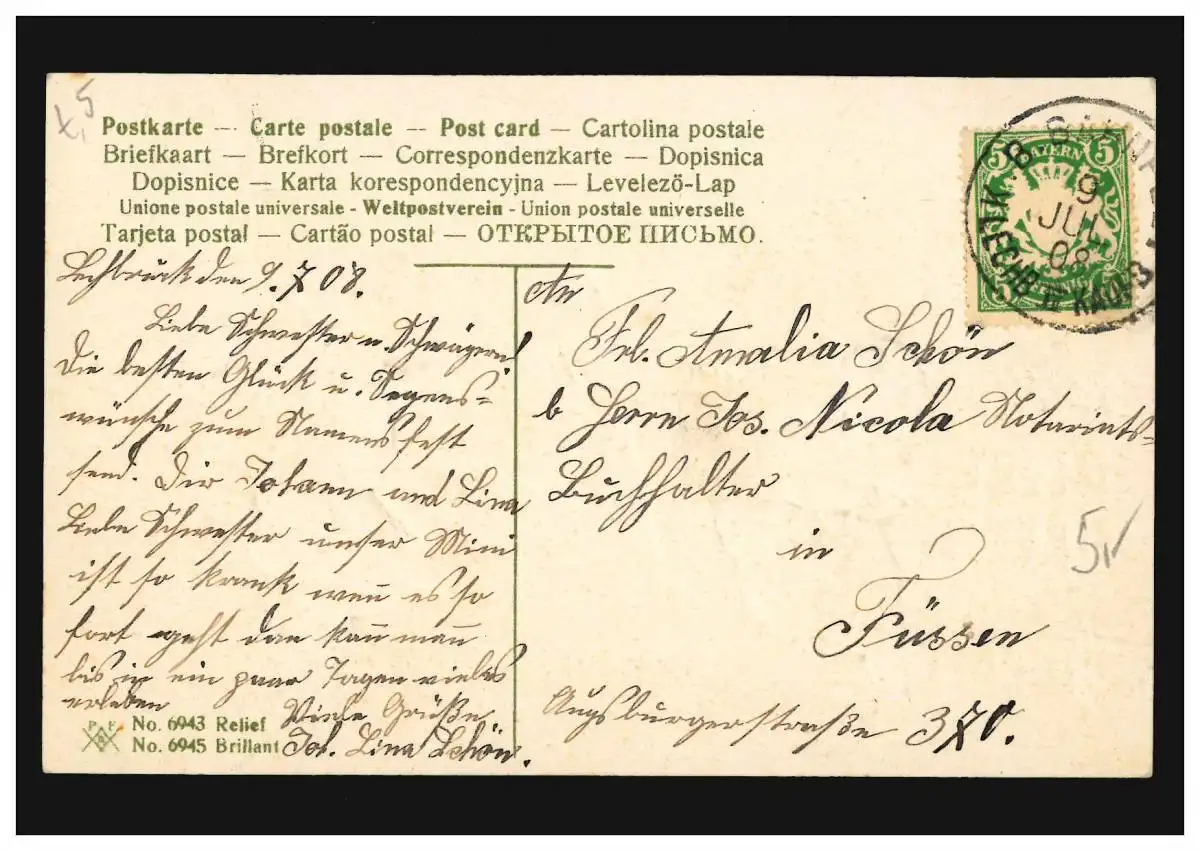 Postkarte — Carte postale — Post card — Cartolina postale
Briefkaart — Brefkort — Correspondenzkarte — Dopisnica
Dopisnice — Karta korespondencyjna — Levelezö-Lap
Unione postale universale - Weltpostverein - Union postale universelle
Tarjeta postal — Cartão postal — ОТКРЫТОЕ ПИСЬМО.
Lechbruck den 9.7.08.
Liebe Schwester u. Schwägerin!
Die besten Glück u. Segens-
wünsche zum Namensfest
send. Dir Johann und Lina
Liebe Schwester unser Mini
ist so krank wen̅ es so
fort geht dan kan̅ man̅
bis in ein paar Tagen vieles
erleben
Viele Grüße
Joh. Lina Schön.
P. F. B.
No. 6943 Relief
No. 6945 Brillant
An
Frl. Amalia Schön
b Herrn Jos. Nicola Notariats-
Buchhalter
in
Füssen
Augsburgerstraße 370.
5 BAYERN 5
5
9
JUL
08
5,